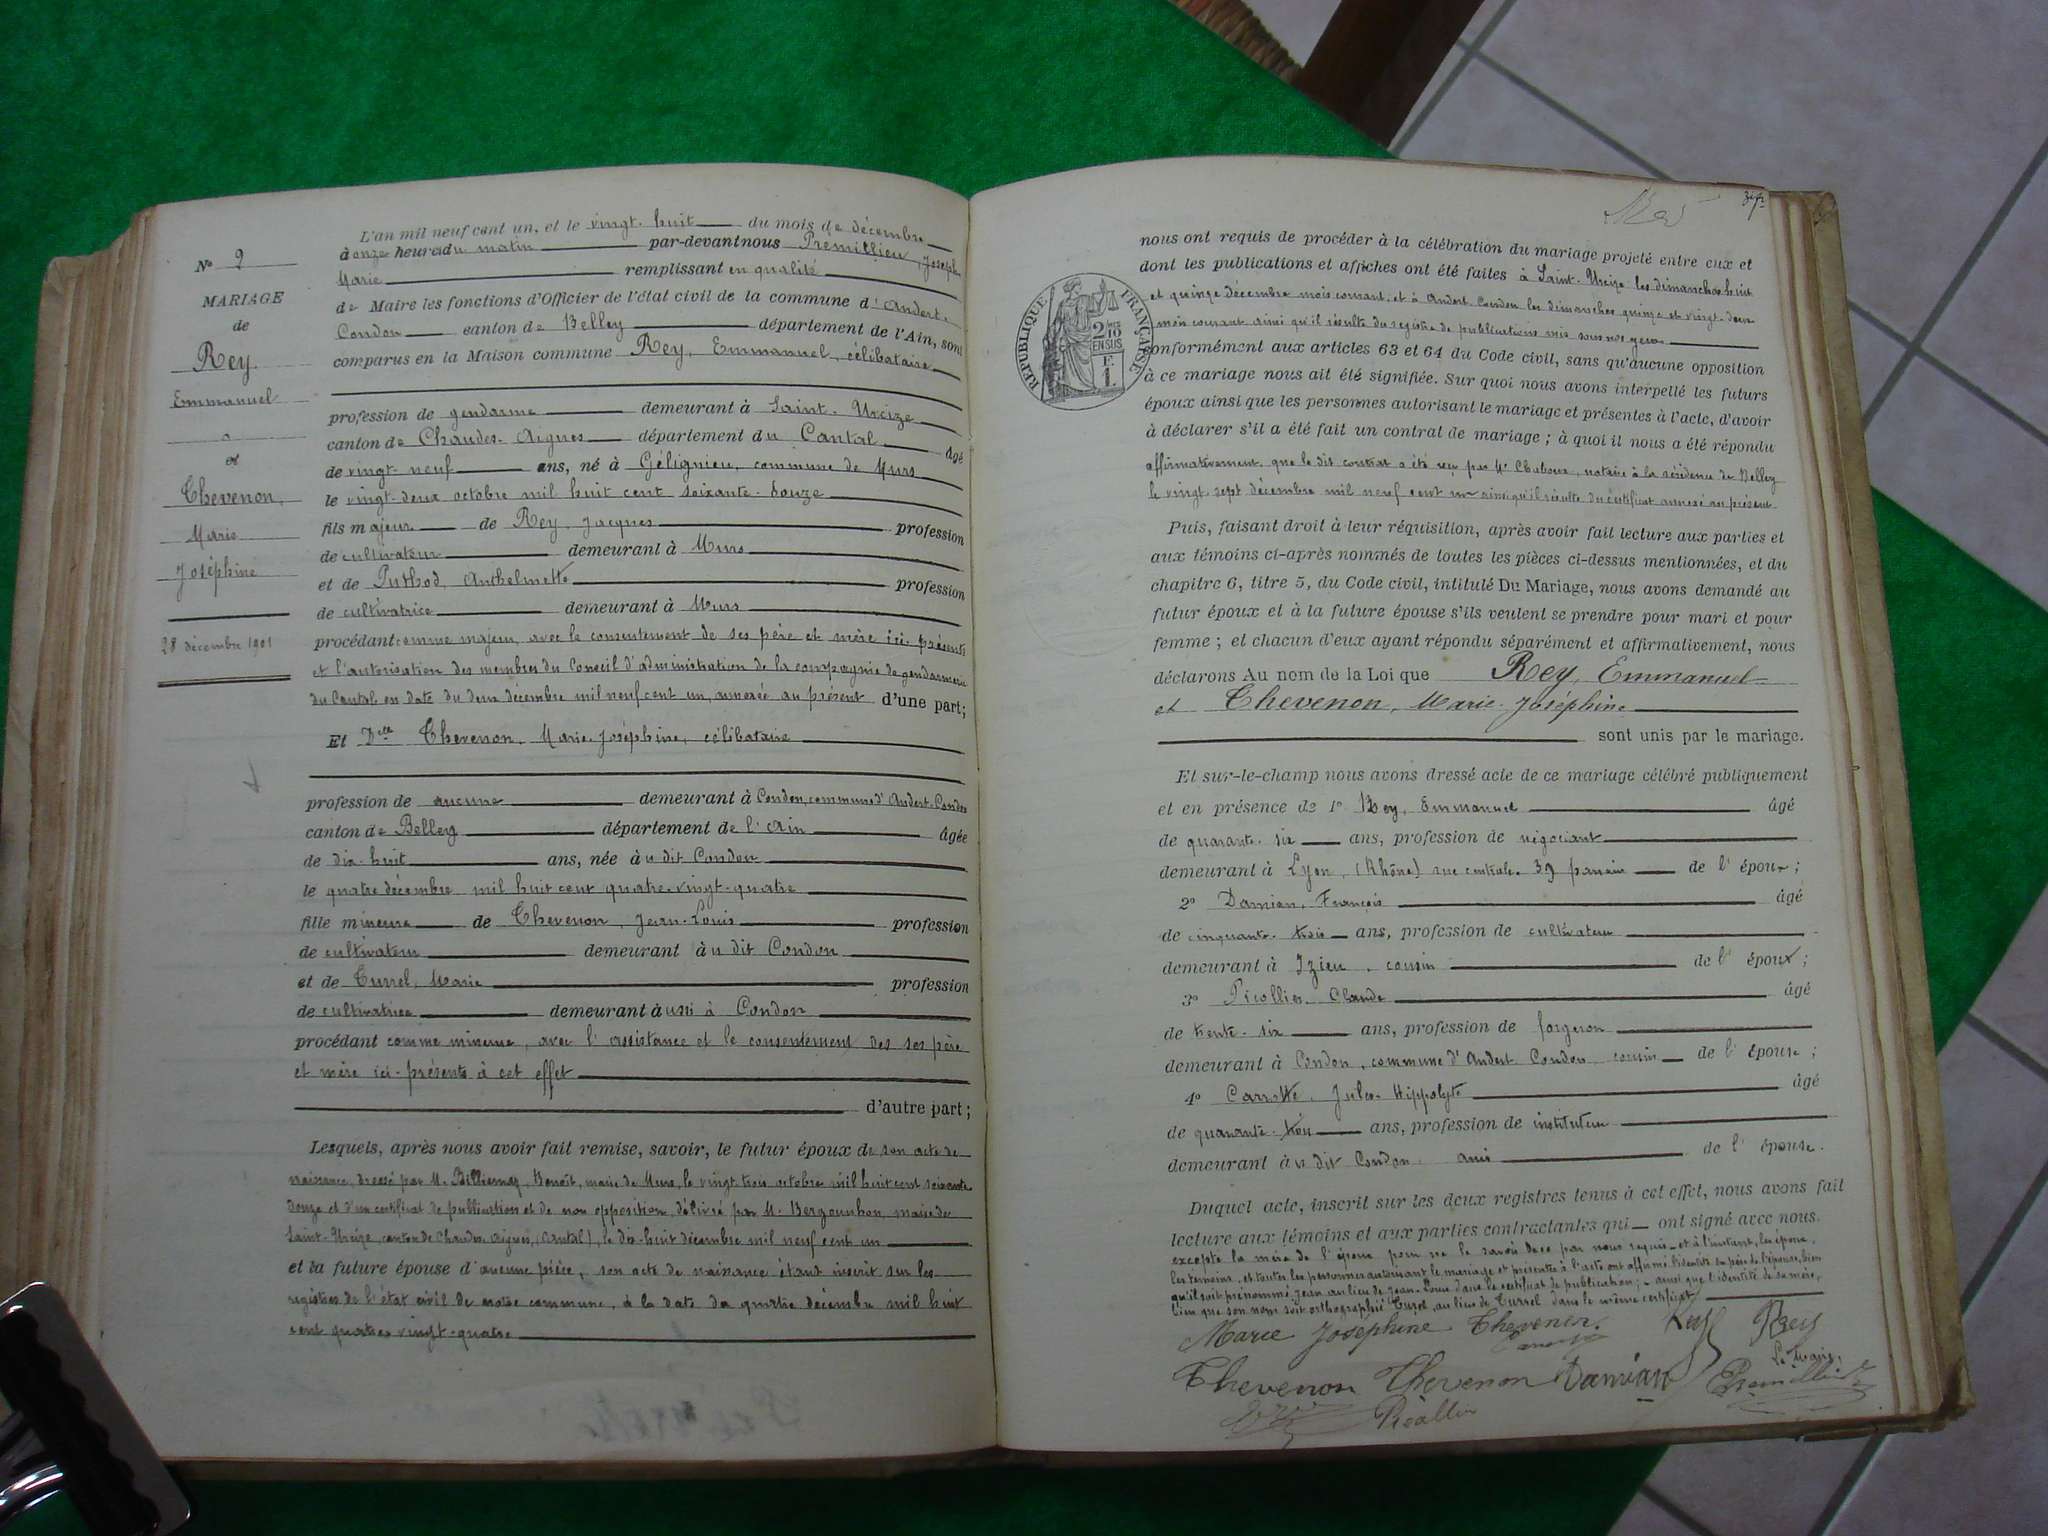 L'an mil neuf cent un, et le vingt-huit du mois de décembre
à onze heures du matin par-devant nous Premillieu, Joseph
Marie remplissant en qualité
de Maire les fonctions d'Officier de l'état civil de la commune d'Andert-
Condon canton de Belley département de l'Ain, sont
comparus en la Maison commune Rey, Emmanuel, célibataire
N° 9
MARIAGE
de
Rey
Emmanuel
et
Thevenon,
Marie
Joséphine
28 décembre 1901
profession de gendarme demeurant à Saint-Urcize
canton de Chaudes-Aigues département du Cantal âgé
de vingt-neuf ans, né à Gélignieu, commune de Murs
le vingt-deux octobre mil huit cent soixante-douze
fils majeur de Rey, Jacques profession
de cultivateur demeurant à Murs
et de Puthod, Anthelmette profession
de cultivatrice demeurant à Murs
procédant comme majeur, avec le consentement de ses père et mère ici présents
et l'autorisation des membres du Conseil d'administration de la compagnie de gendarmerie
du Cantal en date du deux décembre mil neuf cent un, annexée au présent d'une part;
Et Dlle Thevenon, Marie-Joséphine, célibataire
profession de aucune demeurant à Condon, commune d'Andert-Condon
canton de Belley département de l'Ain âgée
de dix-huit ans, née à u dit Condon
le quatre décembre mil huit cent quatre-vingt-quatre
fille mineure de Thevenon, Jean-Louis profession
de cultivateur demeurant à u dit Condon
et de Turrel, Marie profession
de cultivatrice demeurant aussi à Condon
procédant comme mineure, avec l'assistance et le consentement des ses père
et mère ici-présents à cet effet
d'autre part;
Lesquels, après nous avoir fait remise, savoir, le futur époux de son acte de
naissance, dressé par M. Billiemaz, Benoît, maire de Murs, le vingt trois octobre mil huit cent soixante
douze et d'un certificat de publications et de non opposition, délivré par M. Bergounhon, maire de
Saint-Urcize, canton de Chaudes-Aigues, (Cantal), le dix-huit décembre mil neuf cent un
et la future épouse d'aucune pièce, son acte de naissance étant inscrit sur les
registres de l'état civil de notre commune, à la date du quatre décembre mil huit
cent quatre vingt-quatre
nous ont requis de procéder à la célébration du mariage projeté entre eux et
dont les publications et affiches ont été faites à Saint-Urcize les dimanches huit
et quinze décembre mois courant et à Andert-Condon les dimanches quinze et vingt-deux
mois courant ainsi qu'il résulte du registre de publications mis sous nos yeux
conformément aux articles 63 et 64 du Code civil, sans qu'aucune opposition
à ce mariage nous ait été signifiée. Sur quoi nous avons interpellé les futurs
époux ainsi que les personnes autorisant le mariage et présentes à l'acte, d'avoir
à déclarer s'il a été fait un contrat de mariage; à quoi il nous a été répondu
affirmativement que le dit contrat a été reçu par Me notaire à la résidence de Belley
le vingt-sept décembre mil neuf cent un ainsi qu'il résulte du certificat annexé au présent
RÉPUBLIQUE FRANÇAISE
2/10
EN SUS
F
1.
Puis, faisant droit à leur réquisition, après avoir fait lecture aux parties et
aux témoins ci-après nommés de toutes les pièces ci-dessus mentionnées, et du
chapitre 6, titre 5, du Code civil, intitulé Du Mariage, nous avons demandé au
futur époux et à la future épouse s'ils veulent se prendre pour mari et pour
femme; et chacun d'eux ayant répondu séparément et affirmativement, nous
déclarons Au nom de la Loi que Rey, Emmanuel
et Thevenon, Marie-Joséphine
sont unis par le mariage.
Et sur-le-champ nous avons dressé acte de ce mariage célébré publiquement
et en présence de 1° Rey, Emmanuel âgé
de quarante-six ans, profession de négociant
demeurant à Lyon, (Rhône) rue centrale, 39 parrain de l'époux;
2° Damian, François âgé
de cinquante-trois ans, profession de cultivateur
demeurant à Izieu, cousin de l'époux;
3° Picollier, Claude âgé
de trente-six ans, profession de forgeron
demeurant à Condon, commune d'Andert Condon cousin de l'épouse;
4° Carrotte, Jules-Hippolyte âgé
de quarante-trois ans, profession de instituteur
demeurant à u dit Condon ami de l'épouse.
Duquel acte, inscrit sur les deux registres tenus à cet effet, nous avons fait
lecture aux témoins et aux parties contractantes qui ont signé avec nous.
excepté la mère de l'époux pour ne le savoir de ce par nous requis et à l'instant, les époux,
les témoins, et toutes les personnes autorisant le mariage et présentes à l'acte ont affirmé l'identité du père de l'épouse, bien
qu'il soit prénommé Jean au lieu de Jean-Louis dans le certificat de publication; ainsi que l'identité de sa mère,
bien que son nom soit orthographié Turel, au lieu de Turrel dans le même certificat
Marie Joséphine Thevenon Rey Rey
Le Maire,
Thevenon Thevenon Damian Premillieu